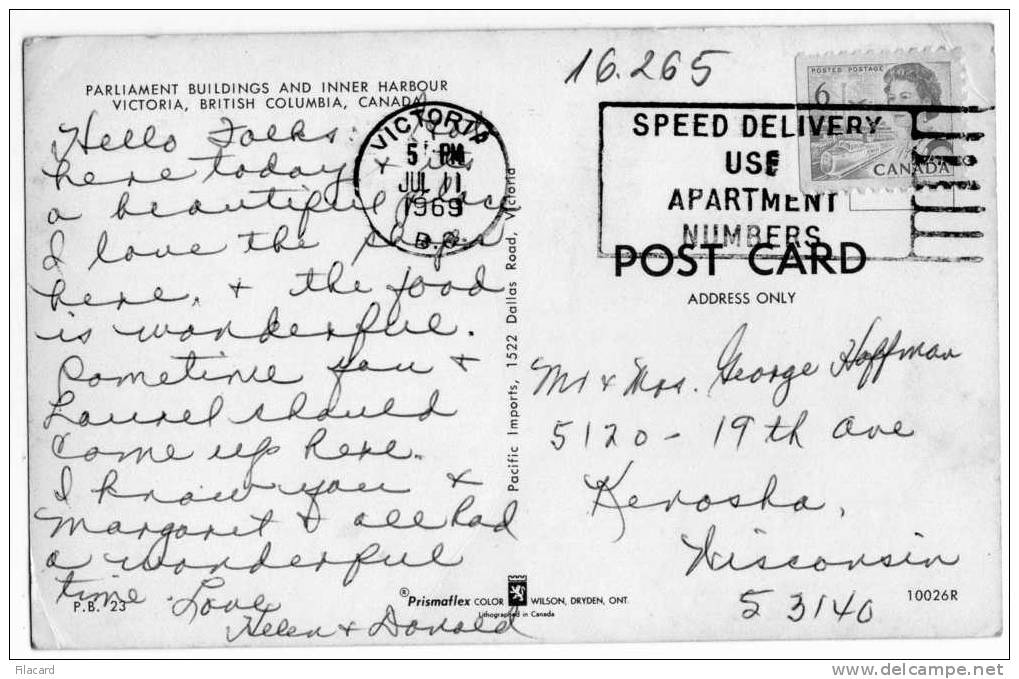 16.265
PARLIAMENT BUILDINGS AND INNER HARBOUR
VICTORIA, BRITISH COLUMBIA, CANADA
Hello Folks:
here today + its
a beautiful place
I love the shops
here, + the food
is wonderful.
Sometime you +
Laurel should
come up here.
I know you +
Margaret + all had
a wonderful
time. Love
Helen + Donald
P.B. 23
VICTORIA
5 PM
JUL 11
1969
B.C.
SPEED DELIVERY
USE
APARTMENT
NUMBERS
POSTES POSTAGE
6
CANADA
POST CARD
ADDRESS ONLY
Mr + Mrs. George Hoffman
5120 - 19th Ave
Kenosha,
Wisconsin
53140
Pacific Imports, 1522 Dallas Road, Victoria
® Prismaflex COLOR WILSON, DRYDEN, ONT.
Lithographed in Canada
10026R
Filacard
www.delcampe.net